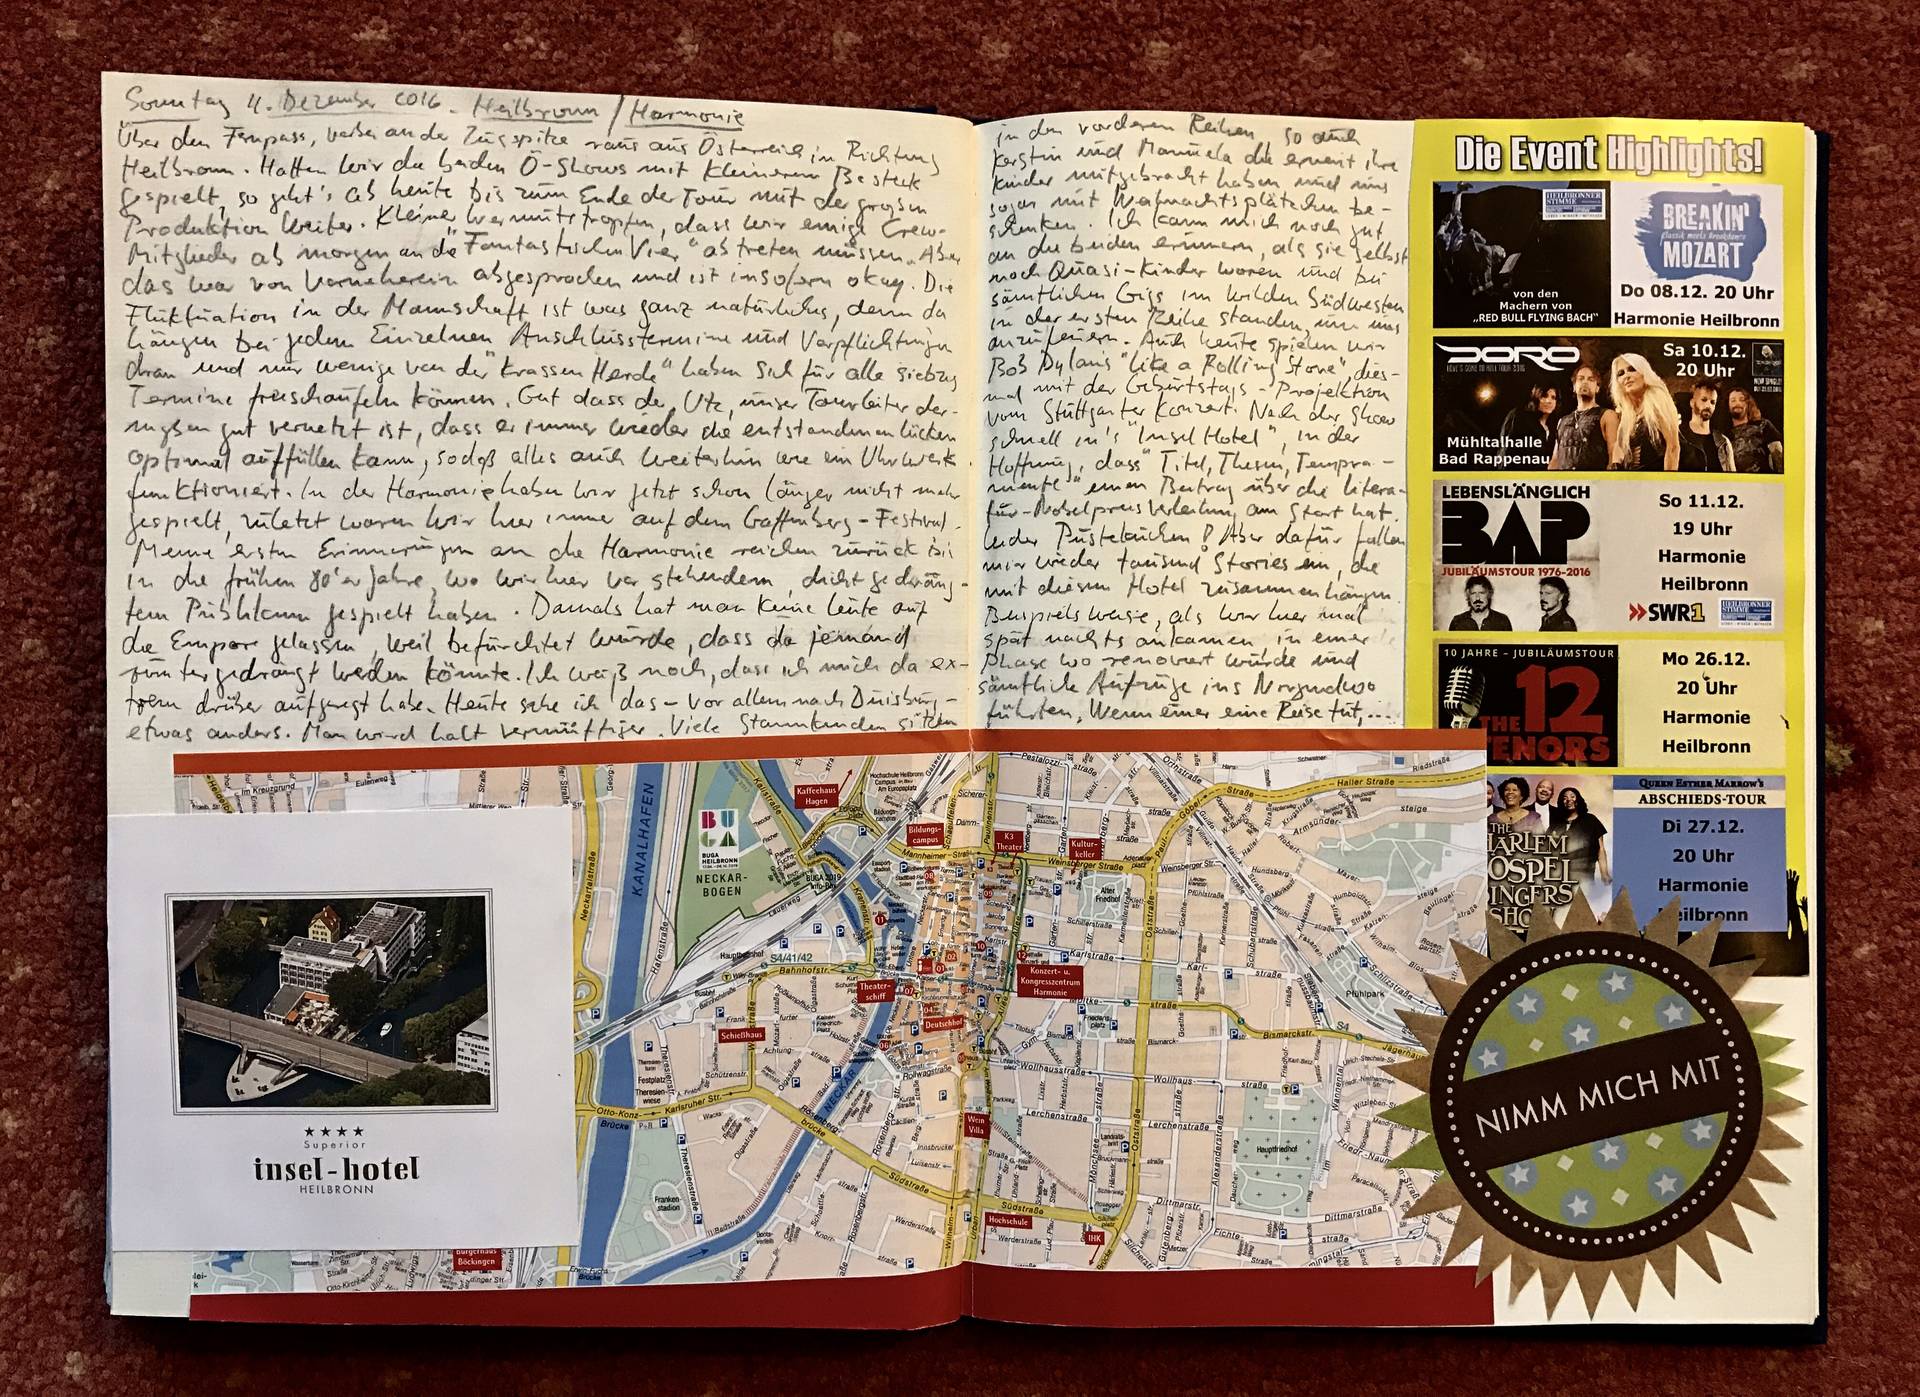 Sonntag 11. Dezember 2016. Heilbronn / Harmonie
Über den Fernpass, vorbei an der Zugspitze raus aus Österreich in Richtung
Heilbronn. Hatten wir die beiden Ö-Shows mit kleinerem Besteck
gespielt, so geht's ab heute bis zum Ende der Tour mit der großen
Produktion weiter. Kleiner Wermutstropfen, dass wir einige Crew-
Mitglieder ab morgen an die "Fantastischen Vier" abtreten müssen. Aber
das war von vorneherein abgesprochen und ist insofern okay. Die
Fluktuation in der Mannschaft ist was ganz natürliches, denn da
hängen bei jedem Einzelnen Anschlusstermine und Verpflichtungen
dran und nur wenige von der "krassen Herde" haben sich für alle siebzig
Termine freischaufeln können. Gut dass der Utz, unser Tourleiter der-
maßen gut vernetzt ist, dass er immer wieder die entstandenen Lücken
optimal auffüllen kann, sodaß alles auch weiterhin wie ein Uhrwerk
funktioniert. In der Harmonie haben wir jetzt schon länger nicht mehr
gespielt, zuletzt waren wir hier immer auf dem Gaffenberg-Festival.
Meine ersten Erinnerungen an die Harmonie reichen zurück bis
in die frühen 80'er Jahre, wo wir hier vor stehendem, dicht gedräng-
tem Publikum gespielt haben. Damals hat man keine Leute auf
die Empore gelassen, weil befürchtet wurde, dass da jemand
runtergedrängt werden könnte. Ich weiß noch, dass ich mich da ex-
trem drüber aufgeregt habe. Heute sehe ich das - vor allem nach Duisburg -
etwas anders. Man wird halt vernünftiger. Viele Stammkunden sitzen
in den vorderen Reihen, so auch
Kerstin und Manuela die erneut ihre
Kinder mitgebracht haben und uns
sogar mit Weihnachtsplätzchen be-
schenken. Ich kann mich noch gut
an die beiden erinnern, als sie selbst
noch Quasi-Kinder waren und bei
sämtlichen Gigs im wilden Südwesten
in der ersten Reihe standen, um uns
anzufeuern. Auch heute spielen wir
Bob Dylans "Like a Rolling Stone" dies-
mal mit der Geburtstags-Projektion
vom Stuttgarter Konzert. Nach der Show
schnell in's "Insel Hotel", in der
Hoffnung, dass "Titel, Thesen, Tempra-
mente" einen Beitrag über die Litera-
tur-Nobelpreisverleihung am Start hat.
Leider Pustekuchen! Aber dafür fallen
mir wieder tausend Stories ein, die
mit diesem Hotel zusammenhängen.
Beispielsweise, als wir hier mal
spät nachts ankamen, in einer
Phase wo renoviert wurde und
sämtliche Aufzüge ins Nirgendwo
führten, Wenn einer eine Reise tut,...
Die Event Highlights!
HEILBRONNER
STIMME
BREAKIN'
MOZART
von den
Machern von
„RED BULL FLYING BACH"
Do 08.12. 20 Uhr
Harmonie Heilbronn
DORO
Sa 10.12.
20 Uhr
Mühltalhalle
Bad Rappenau
LEBENSLÄNGLICH
BAP
JUBILÄUMSTOUR 1976-2016
So 11.12.
19 Uhr
Harmonie
Heilbronn
SWR1
HEILBRONNER
STIMME
10 JAHRE – JUBILÄUMSTOUR
THE 12
TENORS
Mo 26.12.
20 Uhr
Harmonie
Heilbronn
QUEEN ESTHER MARROW'S
THE
HARLEM
GOSPEL
SINGERS
SHOW
ABSCHIEDS-TOUR
Di 27.12.
20 Uhr
Harmonie
Heilbronn
NIMM MICH MIT
★★★★
Superior
insel-hotel
HEILBRONN
KANALHAFEN
BUGA
BUGA
HEILBRONN
NECKAR-
BOGEN
Kaffeehaus
Hagen
Hochschule Heilbronn
Campus
Am Europaplatz
Bildungs-
campus
K3
Theater
Kultur-
keller
Mannheimer Straße
Weinsberger Straße
Haller Straße
Alter
Friedhof
Neckartalstraße
Hafenstraße
Hauptbahnhof
S4/41/42
Bahnhofstr.
Theater-
schiff
Konzert- u.
Kongresszentrum
Harmonie
Karlstraße
Pfühlpark
Bismarckstr.
Deutschhof
Schießhaus
Festplatz
Theresien-
wiese
NECKAR
Rollwagstraße
Wollhausstraße
Lerchenstraße
Oststraße
Otto-Konz-
Brücke
Karlsruher Str.
Wein
Villa
Hauptfriedhof
Franken-
stadion
Südstraße
Hochschule
IHK
Werderstraße
Dittmarstraße
Bürgerhaus
Böckingen
Im Kreuzgrund
Eulenweg